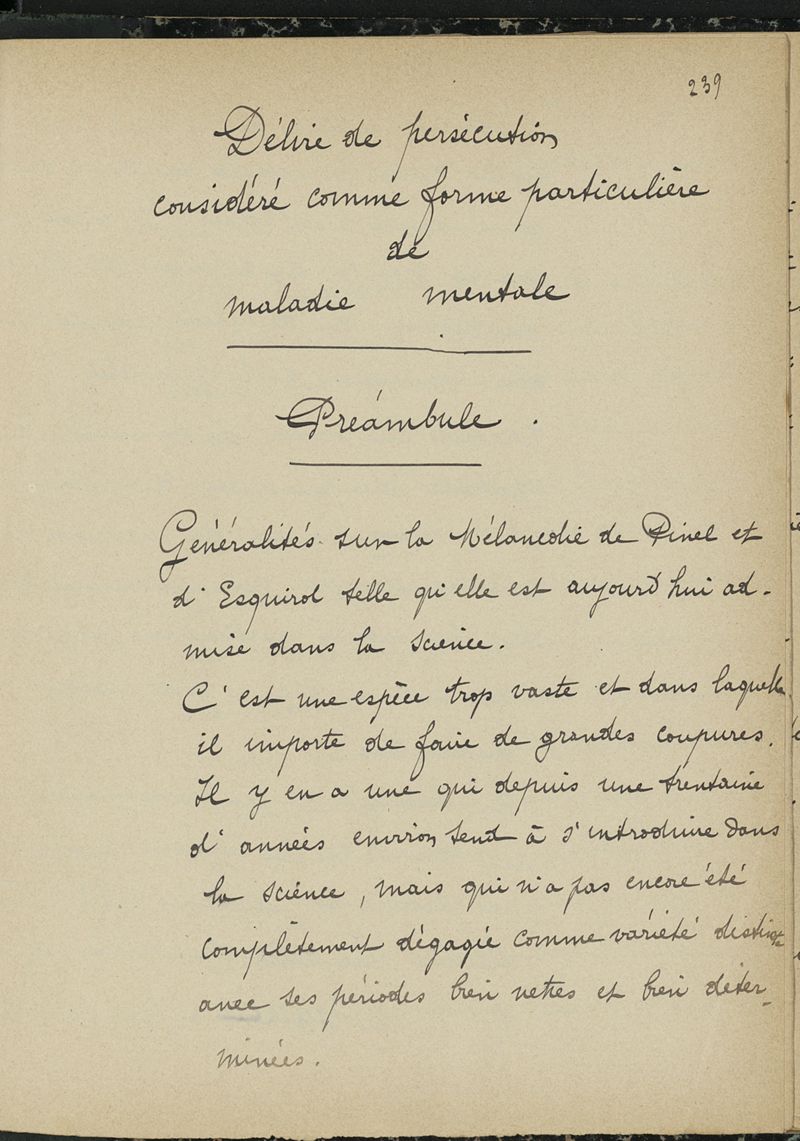 239
Délire de persécution
considéré comme forme particulière
de
maladie mentale
Préambule.
Généralités sur la Mélancolie de Pinel et
d'Esquirol telle qu'elle est aujourd'hui ad-
mise dans la science.
C'est une espèce trop vaste et dans laquelle
il importe de faire de grandes coupures.
Il y en a une qui depuis une trentaine
d'années environ tend à s'introduire dans
la science, mais qui n'a pas encore été
complètement dégagée comme variété distincte
avec ses périodes bien nettes et bien déter-
minées.